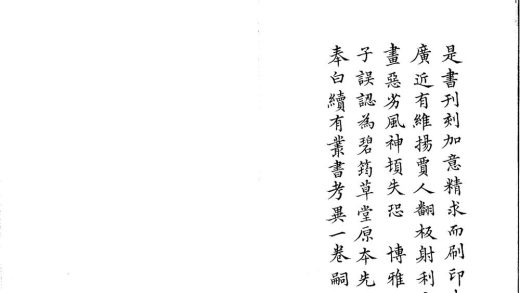 是書刊刻加意精求而刷印
廣近有維揚賈人翻板射利
畫惡劣風神頓失恐 博雅
子誤認為碧筠草堂原本先
奉白續有叢書考異一卷嗣